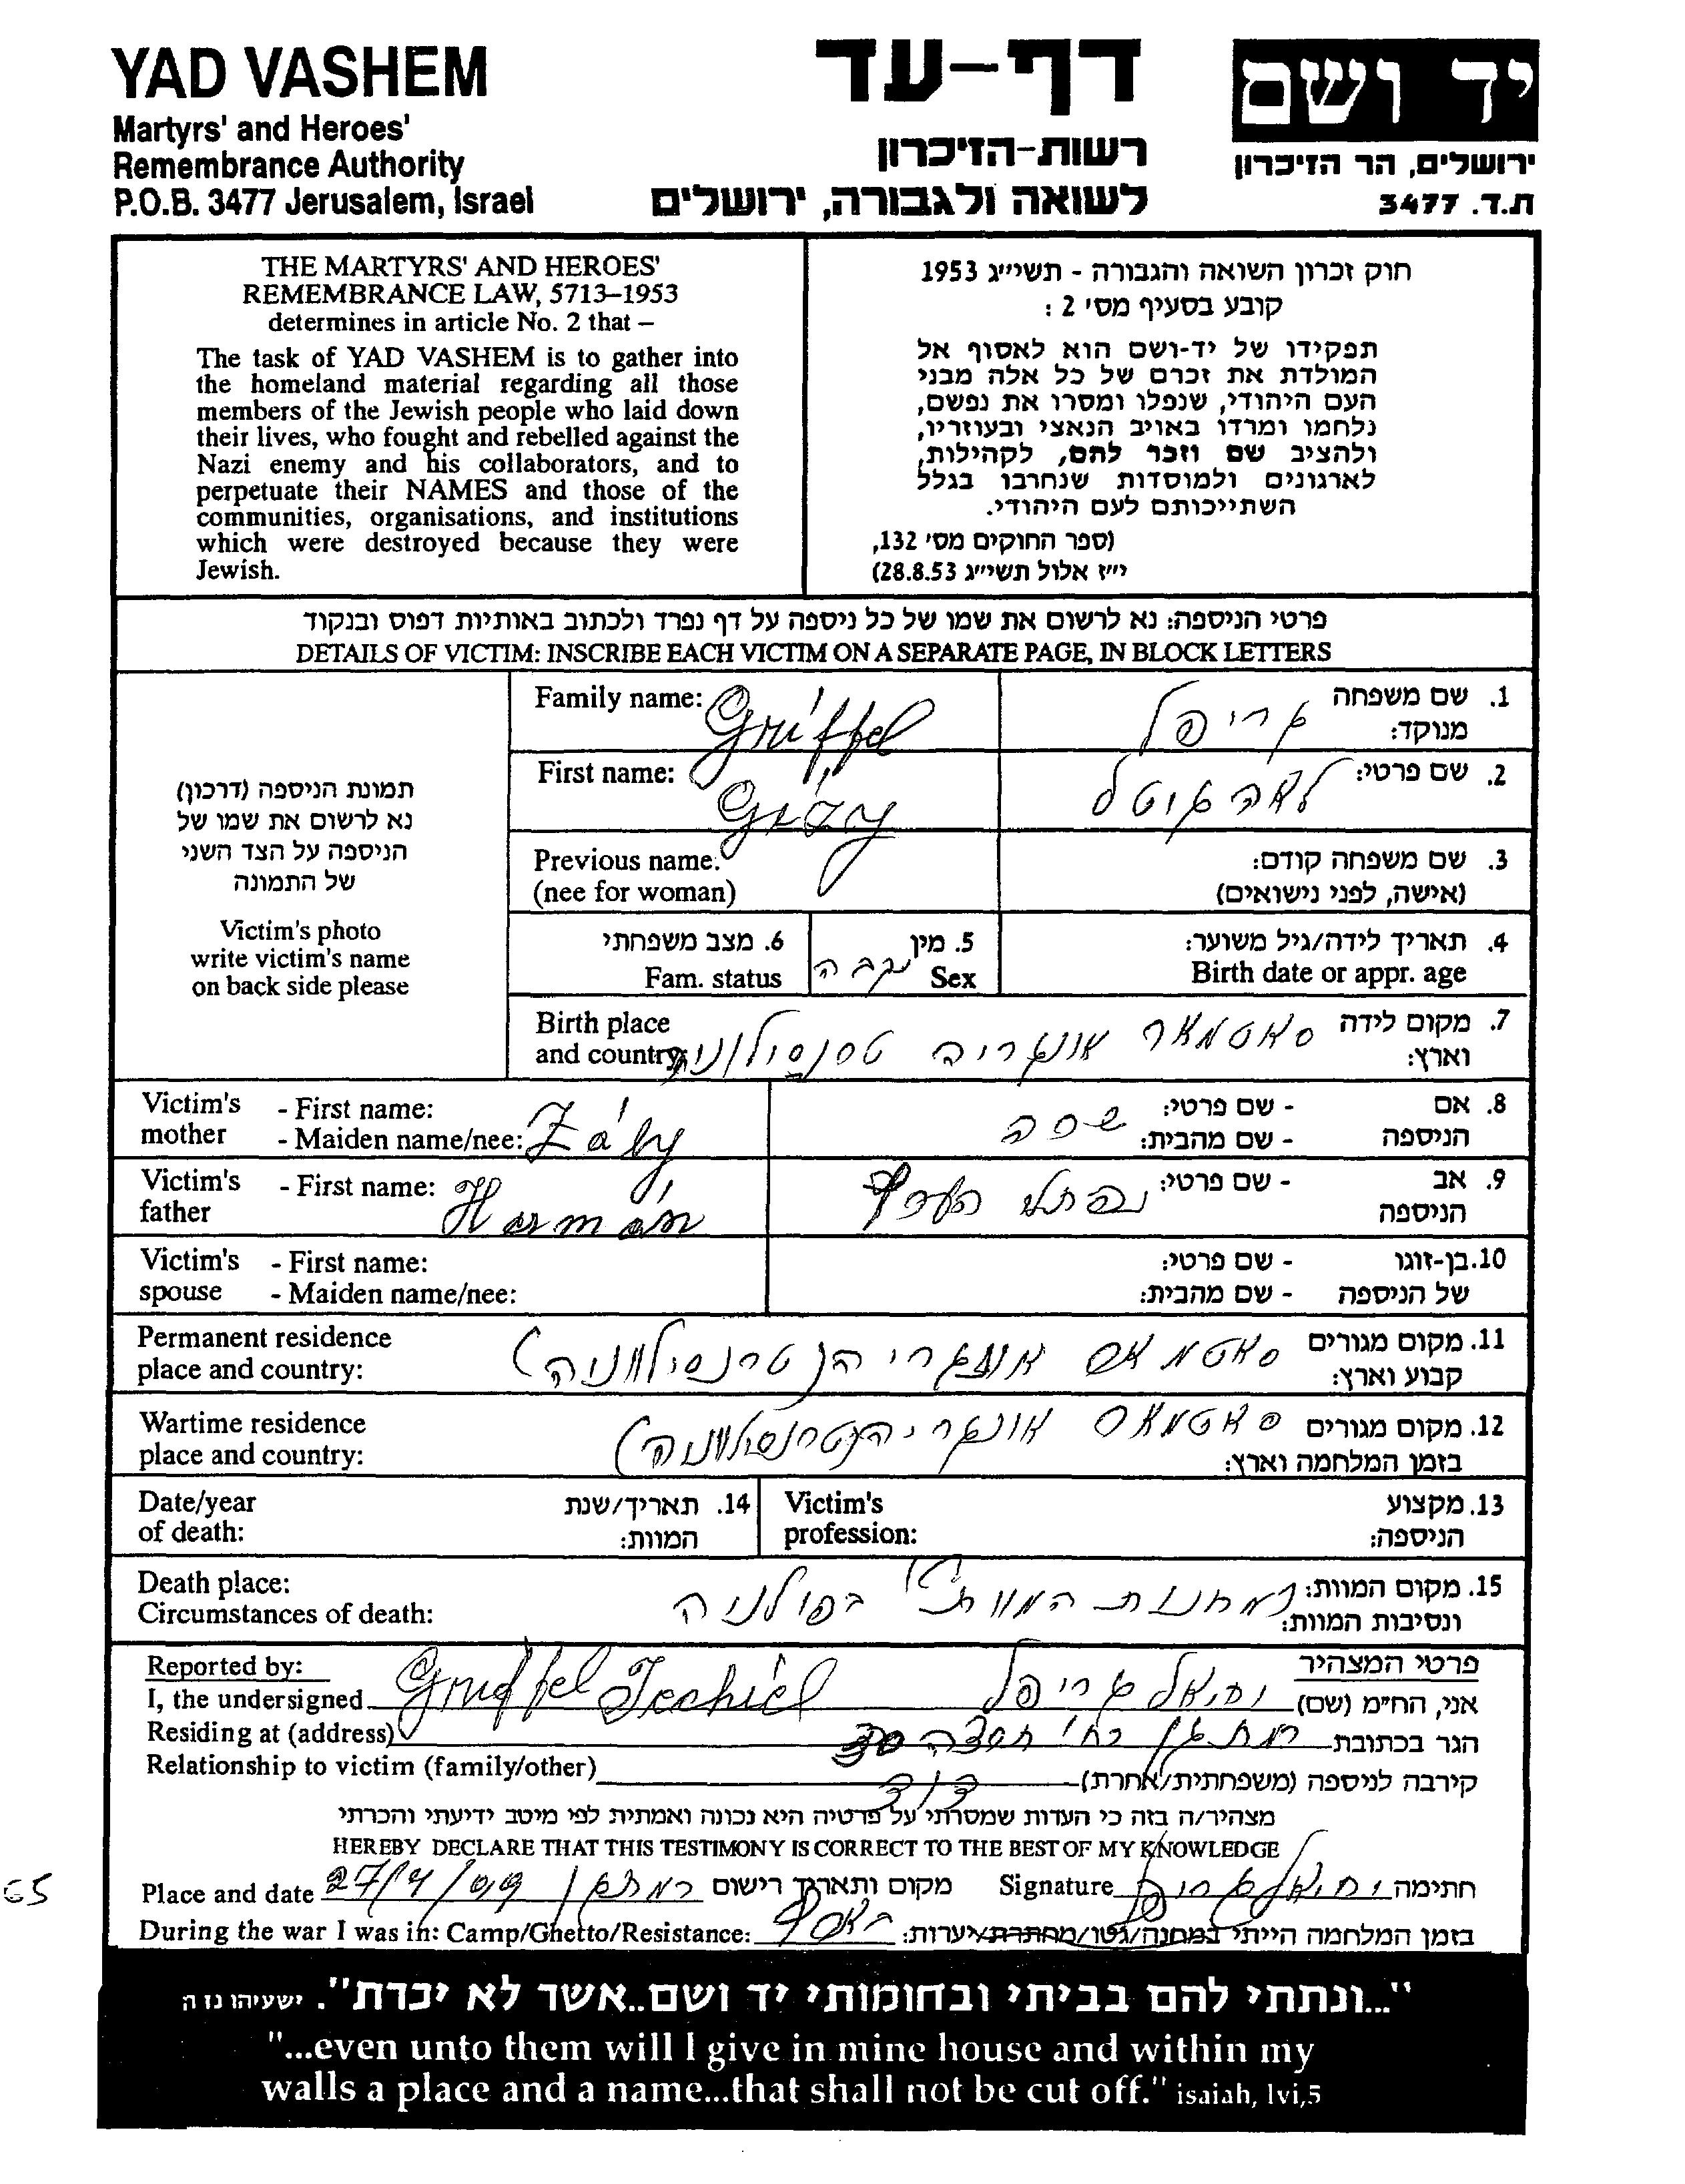 YAD VASHEM
Martyrs' and Heroes'
Remembrance Authority
P.O.B. 3477 Jerusalem, Israel
דף-עד
רשות-הזיכרון
לשואה ולגבורה, ירושלים
יד ושם
ירושלים, הר הזיכרון
ת.ד. 3477
THE MARTYRS' AND HEROES'
REMEMBRANCE LAW, 5713–1953
determines in article No. 2 that –
The task of YAD VASHEM is to gather into
the homeland material regarding all those
members of the Jewish people who laid down
their lives, who fought and rebelled against the
Nazi enemy and his collaborators, and to
perpetuate their NAMES and those of the
communities, organisations, and institutions
which were destroyed because they were
Jewish.
חוק זכרון השואה והגבורה - תשי״ג 1953
קובע בסעיף מס' 2 :
תפקידו של יד-ושם הוא לאסוף אל
המולדת את זכרם של כל אלה מבני
העם היהודי, שנפלו ומסרו את נפשם,
נלחמו ומרדו באויב הנאצי ובעוזריו,
ולהציב שם וזכר להם, לקהילות,
לארגונים ולמוסדות שנחרבו בגלל
השתייכותם לעם היהודי.
(ספר החוקים מס' 132,
י״ז אלול תשי״ג 28.8.53)
פרטי הניספה: נא לרשום את שמו של כל ניספה על דף נפרד ולכתוב באותיות דפוס ובנקוד
DETAILS OF VICTIM: INSCRIBE EACH VICTIM ON A SEPARATE PAGE, IN BLOCK LETTERS
תמונת הניספה (דרכון)
נא לרשום את שמו של
הניספה על הצד השני
של התמונה
Victim's photo
write victim's name
on back side please
Family name: Griffel
1. שם משפחה גריפל
מנוקד:
First name: Gizy
2. שם פרטי:
Previous name:
(nee for woman)
3. שם משפחה קודם:
(אישה, לפני נישואים)
6. מצב משפחתי
Fam. status
5. מין נקבה
Sex
4. תאריך לידה/גיל משוער:
Birth date or appr. age
Birth place
and country:
7. מקום לידה סאטמאר אונגריה טרנסילוניה
וארץ:
Victim's mother - First name:
- Maiden name/nee: Zály
8. אם - שם פרטי:
הניספה - שם מהבית:
Victim's father - First name: Hermán
9. אב - שם פרטי: נפתלי
הניספה
Victim's spouse - First name:
- Maiden name/nee:
10. בן-זוגו - שם פרטי:
של הניספה - שם מהבית:
Permanent residence
place and country:
11. מקום מגורים
קבוע וארץ:
Wartime residence
place and country:
12. מקום מגורים
בזמן המלחמה וארץ:
Date/year
of death:
14. תאריך/שנת
המוות:
Victim's
profession:
13. מקצוע
הניספה:
Death place:
Circumstances of death:
15. מקום המוות: במחנות המוות בפולניה
ונסיבות המוות:
Reported by:
פרטי המצהיר
I, the undersigned Griffel Jechiel
אני, הח״מ (שם) יחיאל גריפל
Residing at (address)
הגר בכתובת רמת גן
Relationship to victim (family/other)
קירבה לניספה (משפחתית/אחרת) דוד
מצהיר/ה בזה כי העדות שמסרתי על פרטיה היא נכונה ואמתית לפי מיטב ידיעתי והכרתי
HEREBY DECLARE THAT THIS TESTIMONY IS CORRECT TO THE BEST OF MY KNOWLEDGE
Place and date 27/4/99 מקום ותאריך רישום
Signature חתימה יחיאל גריפל
During the war I was in: Camp/Ghetto/Resistance:
בזמן המלחמה הייתי במחנה/גטו/מחתרת/יערות:
"...ונתתי להם בביתי ובחומותי יד ושם..אשר לא יכרת". ישעיהו נז ה
"...even unto them will I give in mine house and within my
walls a place and a name...that shall not be cut off." isaiah, lvi,5